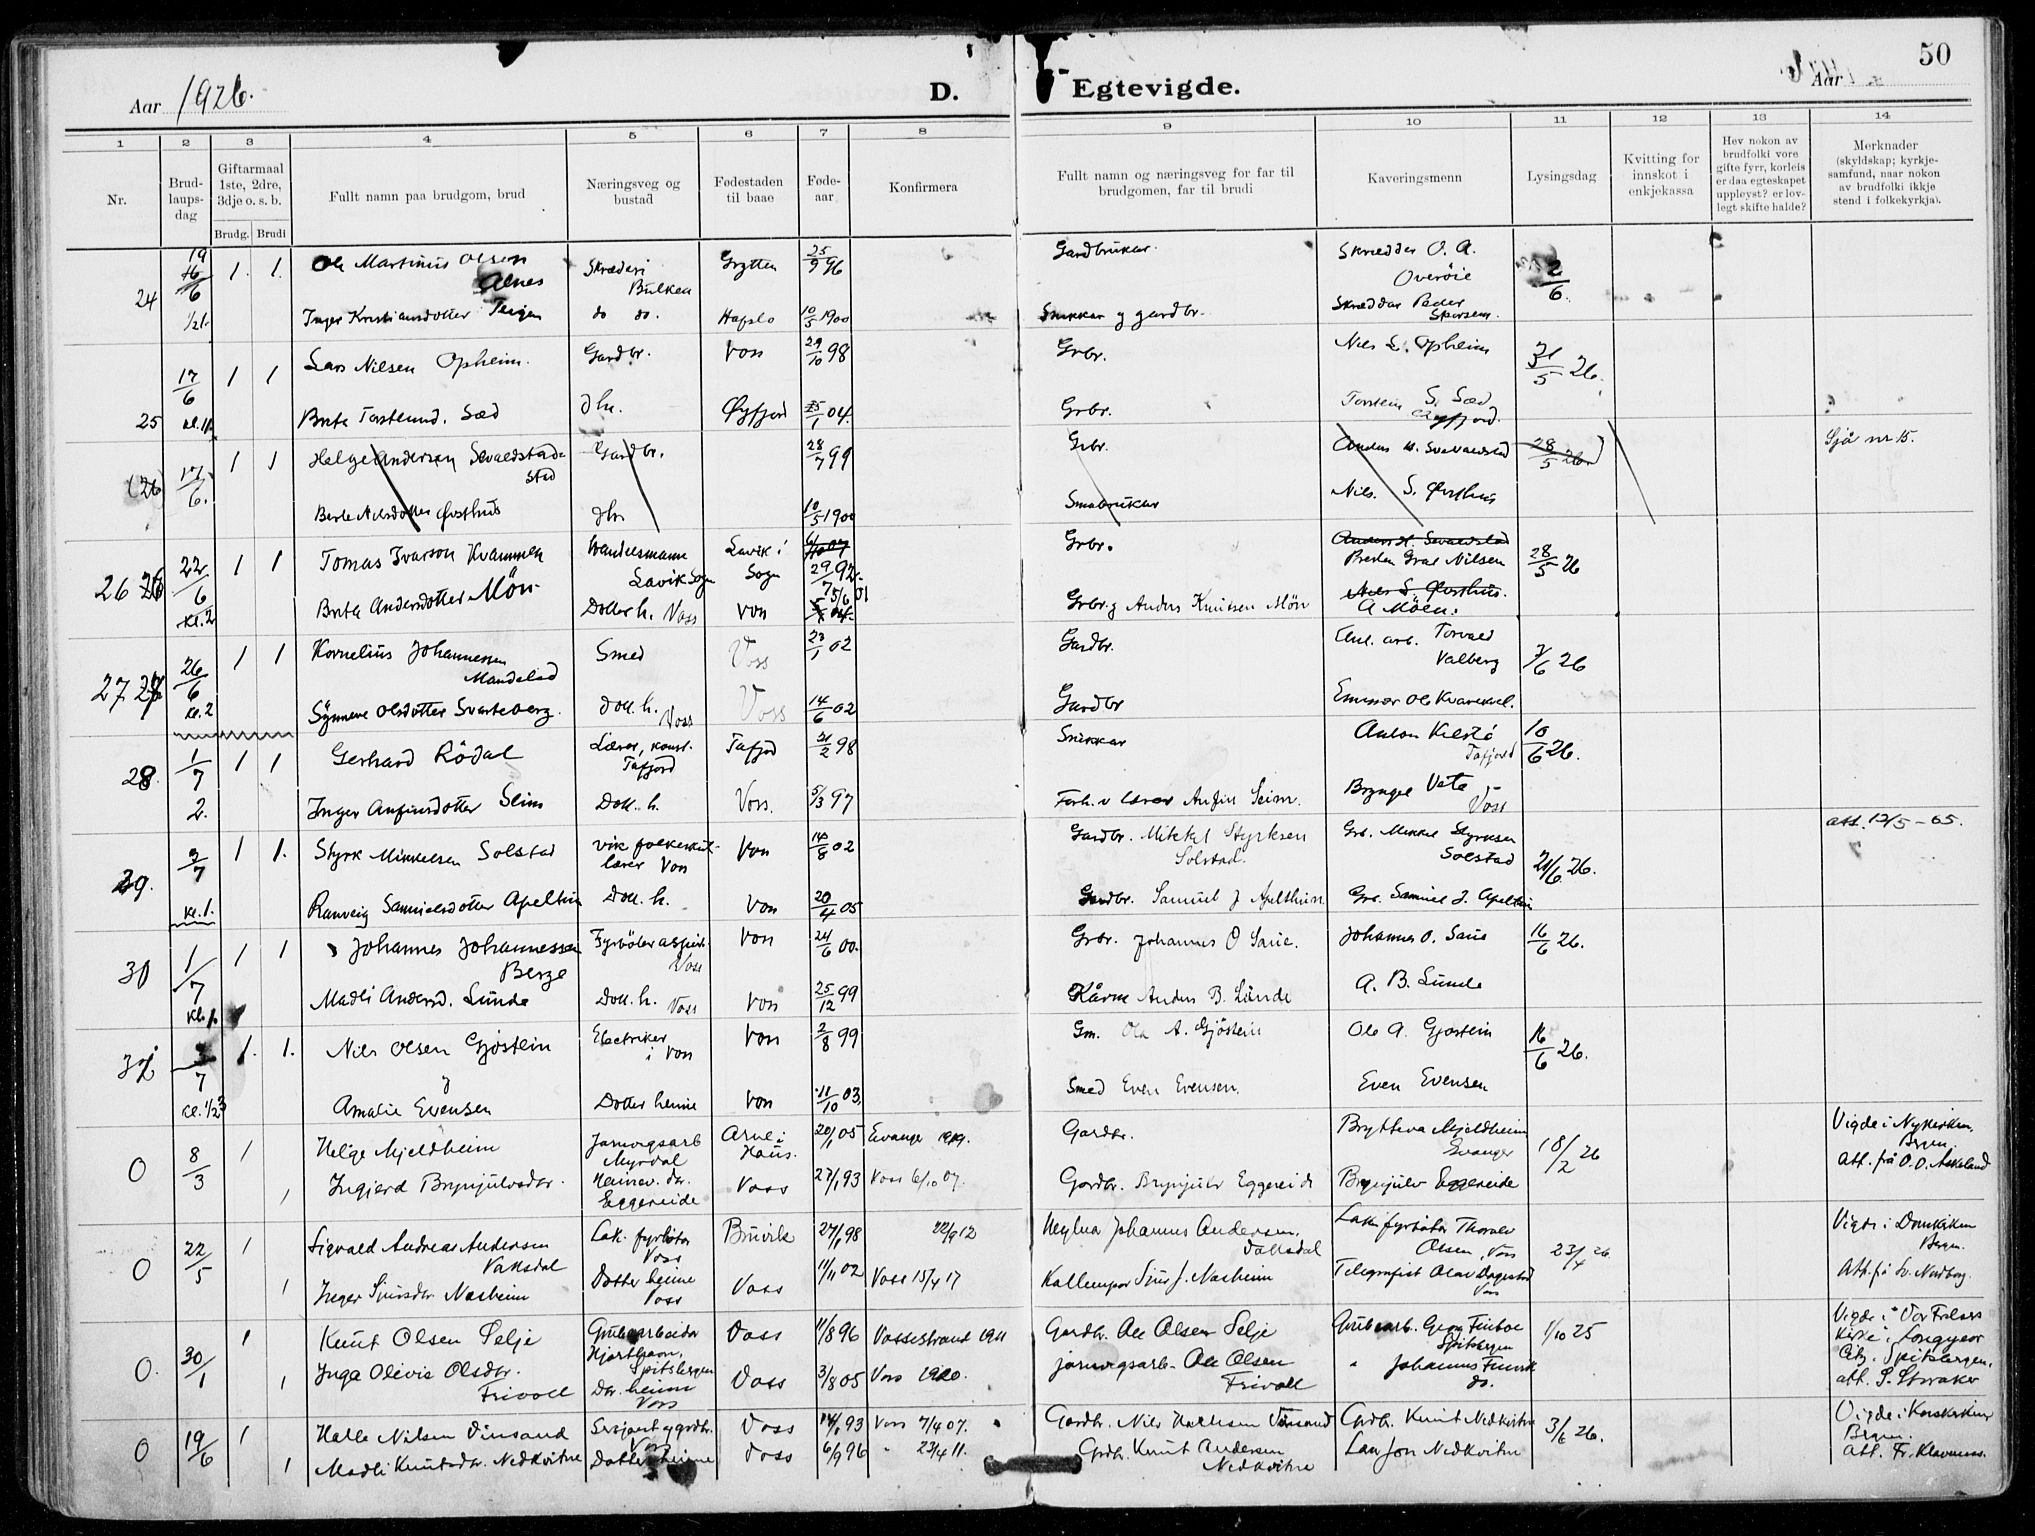 Aar 1926.
D. Egtevigde.
Aar
50
1 2 3 4 5 6 7 8 9 10 11 12 13 14
Nr.
Brud-laups-dag
Giftarmaal 1ste, 2dre, 3dje o. s. b.
Brudg. Brudi
Fullt namn paa brudgom, brud
Næringsveg og bustad
Fødestaden til baae
Føde-aar
Konfirmera
Fullt namn og næringsveg for far til brudgomen, far til brudi
Kaveringsmenn
Lysingsdag
Kvitting for innskot i enkjekassa
Hev nokon av brudfolki vore gifte fyrr, korleis er daa egteskapet uppløyst? er lov-legt skifte halde?
Merknader (skyldskap; kyrkje-samfund, naar nokon av brudfolki ikkje stend i folkekyrkja).
24 19/6 1 1. Ole Martinus Olsen Alnes Skrædari Bulken Grytten 25/9 96 Gardbrukar. Skrædder O. A. Overöie 2/6.
1/21. Inger Kristiansdotter Teigen do do. Hafslo 10/5 1900 Snikkar g gardbr. Skreddar Peder
25 17/6 1 1 Lars Nilsen Opheim. Gardbr. Voss 29/10 98 Grbr. Nils L. Opheim 31/5 26.
kl. 11. Brita Torsteinsd. Sæd dhr. Øyfjord 25/1 04. Grbr. Torstein S. Sæd Øyfjord.
(26) 17/6. 1 1 Helge Andersen Sevaldstad Gardbr. 28/7 99 Grbr. Anders H. Sevaldstad 28/5 26. Sjå nr 15.
Berta Nilsdotter Østhus dhr 10/5 1900 Småbrukar Nils. S. Østhus
26 22/6 1 1 Tomas Ivarson Kvammen Handelsmann Lavik Sogn Lavik i Sogn 29/7 92. Grbr. Anders H. Sevaldstad Nilsen 28/5 26
kl. 2 Brita Andersdotter Mön Dotter h. Voss Voss 5/6 01 Grbr. g Anders Knutsen Mön Nils S. Østhus. A Möen.
27 26/6 1 1 Kornelius Johannessen Mandelid Smed Voss 23/1 02 Gardbr. Anl. arb. Torvald Valberg 7/6 26
kl. 2 Synneve Olsdotter Svarteberg. Dott. h. Voss Voss 14/6 02 Gardbr Ole Kvarekvel.
28. 1/7 1 1 Gerhard Rödal Lærar, Tafjord Tafjord 21/2 98 Snikkar Anton Kilstö Tafjord 10/6 26.
2. Inger Anfinsdotter Seim Dott. h. Voss. 5/3 97 Forh. v lærer Anfin Seim. Bryngel Vete Voss
29. 3/7 1 1. Styrk Mikkelsen Solstad Vik folkeskul-lærer Voss Voss 14/8 02 Gardbr. Mikkel Styrksen Solstad. Grb. Mikkel Styrksen Solstad 21/6 26. att. 12/5-65.
kl. 1. Ranveig Samuelsdotter Apeltun Dott. h. Voss 20/4 05 Gardbr. Samuel J Apelthun Grb. Samuel J. Apeltun
30 1/7 1 1 Johannes Johannessen Berge Fyrböter aspir. Voss Voss 24/6 00. Grbr. Johannes O Saue. Johannes O. Saue 16/6 26.
Madli Andersd. Lunde Dott. h. Voss Voss 25/12 99 Kårm Anders B. Lunde A. B. Lunde
3/7 1. 1. Nils Olsen Gjöstein Electriker i Voss Voss 2/8 99 Gm. Ole A. Gjöstein Ole A. Gjostein 16/6 26.
kl. 1/2 3 g Amalie Evensen Dotter heime Voss 11/10 03. Smed Even Evensen. Even Evensen
0 8/3 1 Helge Mjeldheim Jarnvegsarb Myrdal Arne i Haus. 20/1 05 Evanger 1919. Gardbr. Bryteva Mjeldheim Evanger 18/2 26 Vigde i Nykirken, Bergen. Att. frå O. O. Askeland
1 Ingjerd Brynjulvsdtr. Heimev. dr. Eggereide Voss 27/1 93 Voss 6/10 07. Gardbr. Brynjulv Eggereide Brynjulv Eggereide
0 22/5 1 Sigvald Andreas Andersen Vaksdal Lok. fyrböter Voss Bruvik 27/1 98 22/9 12 Johannes Andersen. Vaksdal Lok. fyrböter Thorolv Olsen, Voss 23/4 26 Vigde i Domkirken Bergen.
1 Inger Sjursdtr. Næsheim Dotter heime Voss Voss 11/11 02 Voss 15/4 17 Kallemper Sjur J. Næsheim Telegrafist Olav Dagestad Voss Att. frå Sv. Nordborg.
0. 30/1 1 Knut Olsen Selje Grubearbeider Hjorthavn, Spitsbergen Voss 11/8 96 Vossestrand 1911 Gardbr. Ole Olsen Selje Grubearb. Georg Spitsbergen 1/10 25 Vigde i Vor Frelsers kirke i Longyear City, Spitsbergen.
1 Inga Olivia Olsdtr. Frivoll Dr. heime Voss Voss 3/8 05 Voss 1920. jarnvegsarb. Ole Olsen Frivoll " Johannes do. att. S. Storaker
0 19/6 1 Halle Nilsen Vinsand Sersjant g grdbr. Voss Voss 14/1 93 Voss 7/4 07. Gardbr. Nils Hallesen Vinsand Grdbr. Knut Nedkvitne 3/6 26. Vigde i Korskirken Bergen.
1 Madli Knutsdtr. Nedkvitne Dotter heime Voss 6/9 96 " 23/4 11. Grdbr. Knut Andersen Nedkvitne Lars Jon Nedkvitne att. Fr. Klaveness.